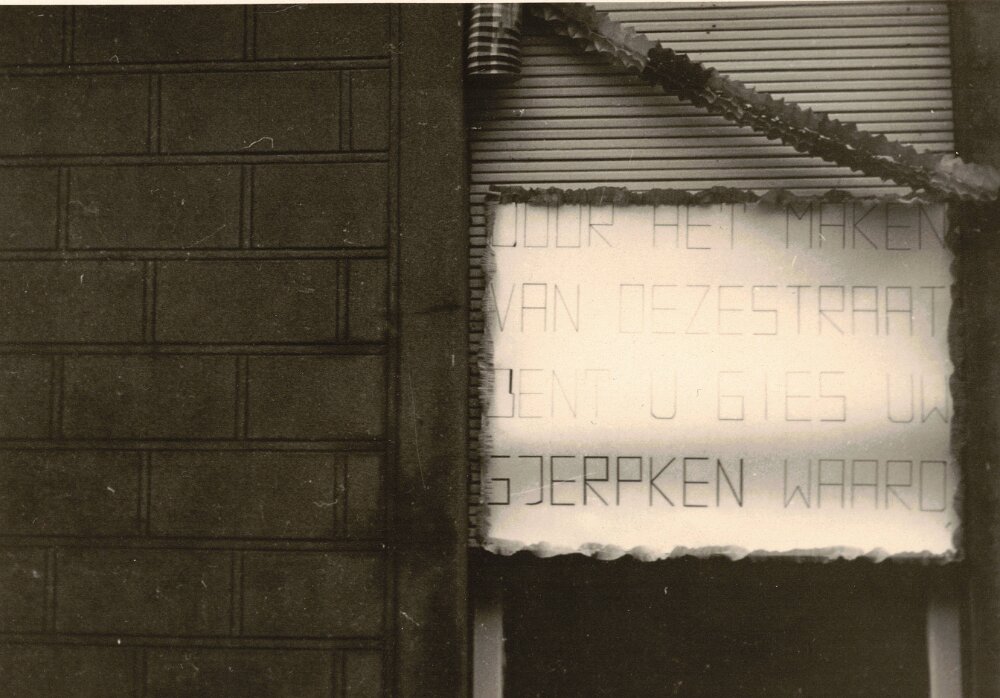 DOOR HET MAKEN
VAN DEZESTRAAT
BENT U GIES UW
SJERPKEN WAARD